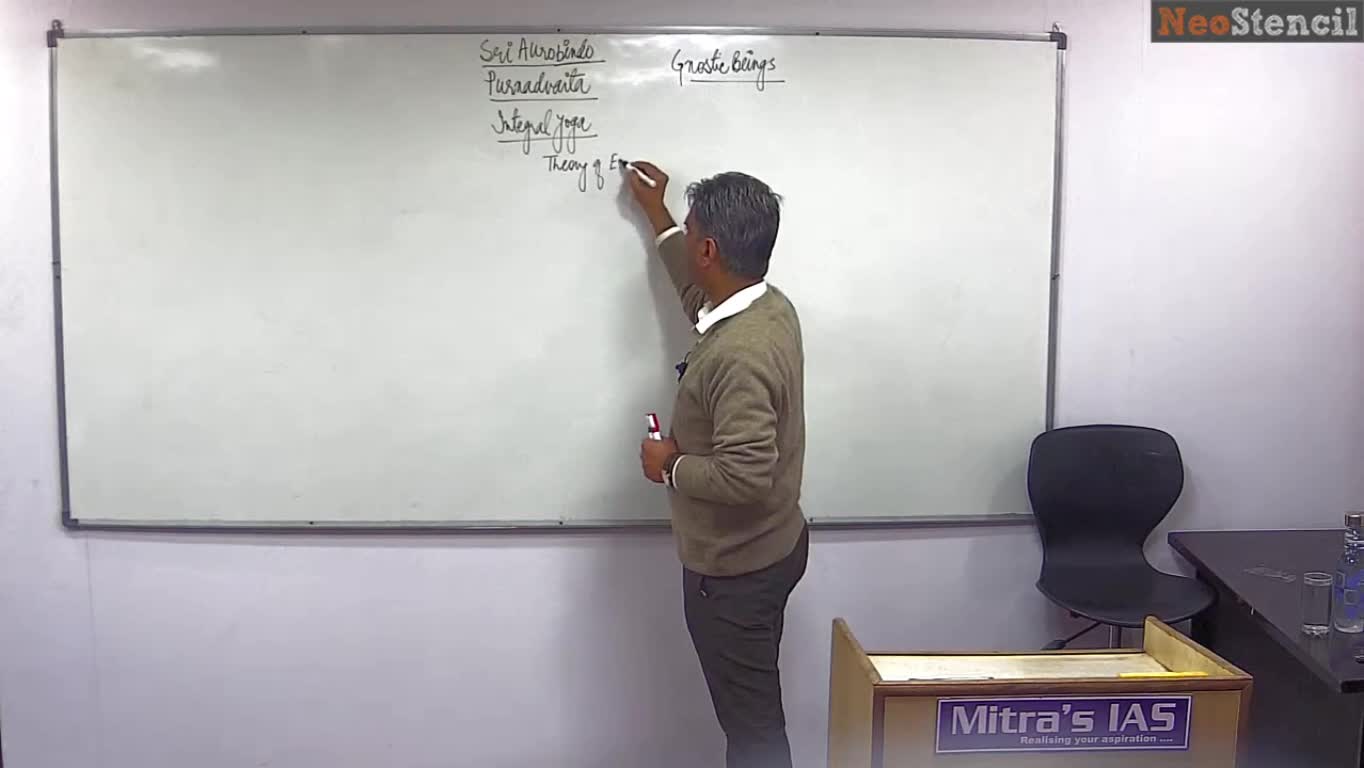 NeoStencil
Sri Aurobindo
Purnadvaita
Integral Yoga
Theory of
Gnostic Beings
Mitra's IAS
Realising your aspiration ....